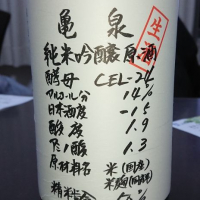 亀泉
生
純米吟醸原酒
酵母 CEL-24
アルコール分 14.6
日本酒度 -15
酸度 1.9
アミノ酸 1.3
原材料名 米(国産)
米麹(国産米)
精米